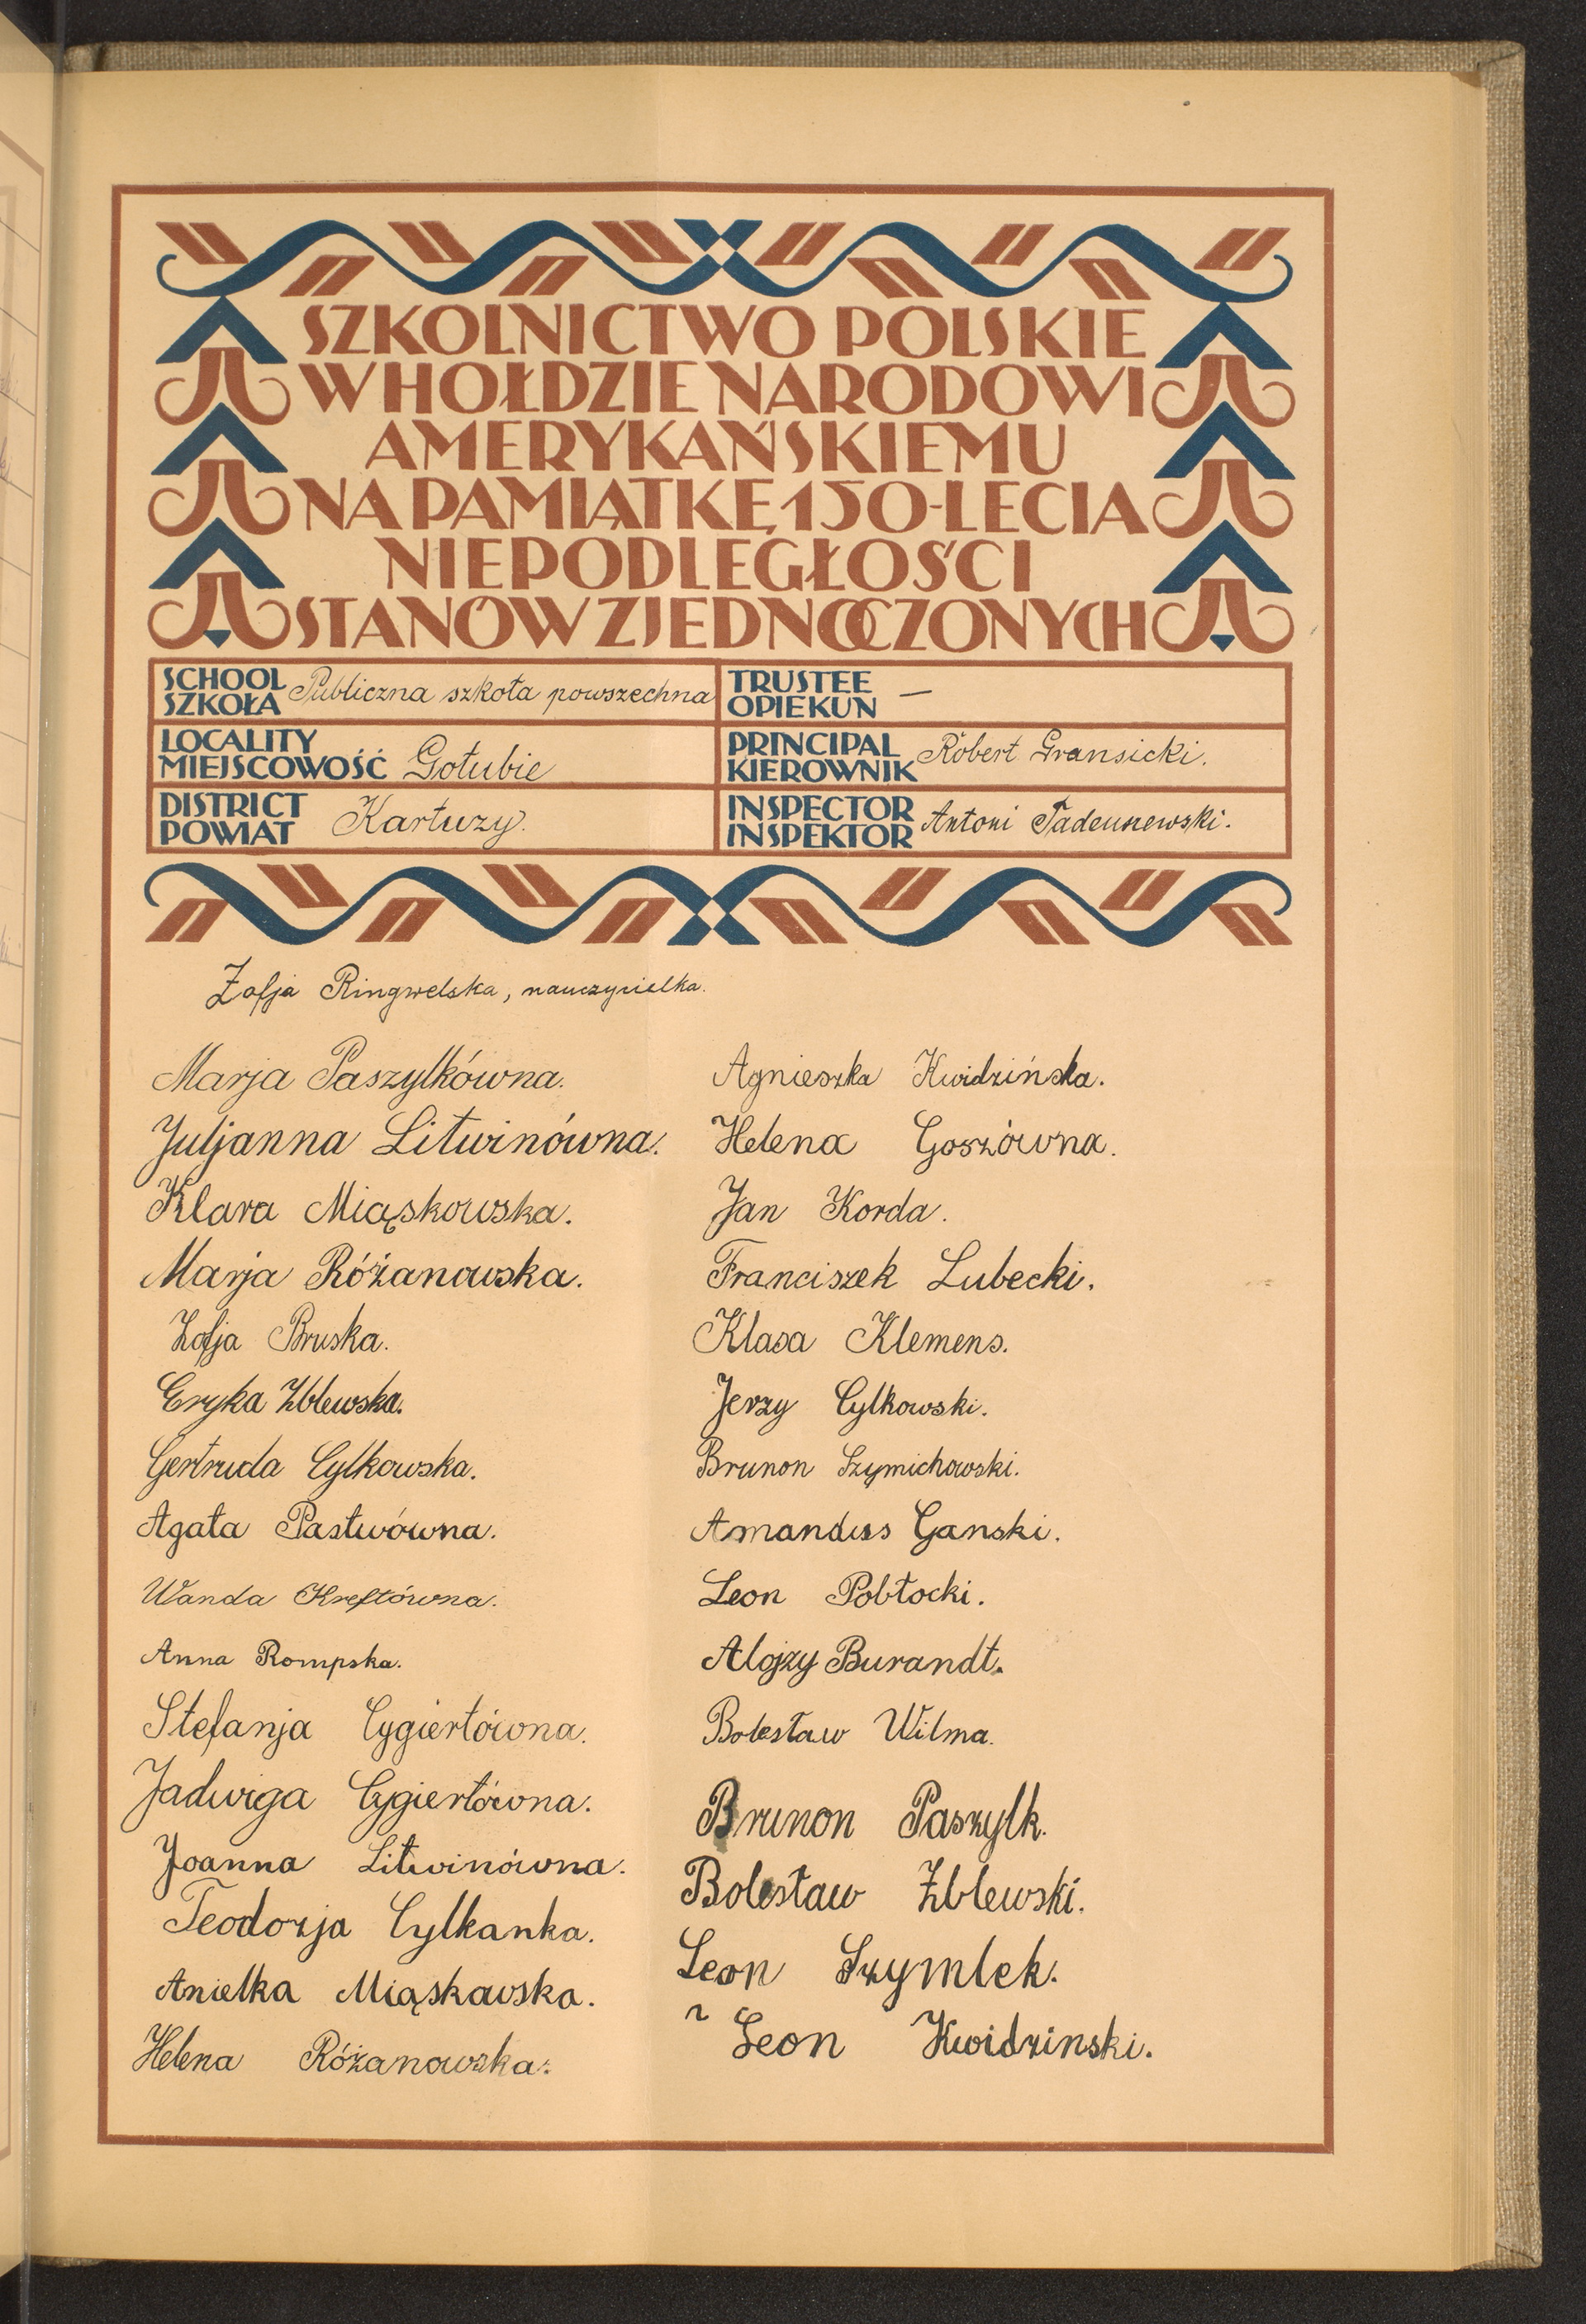 SZKOLNICTWO POLSKIE
W HOŁDZIE NARODOWI
AMERYKAŃSKIEMU
NA PAMIĄTKĘ 150-LECIA
NIEPODLEGŁOŚCI
STANÓW ZJEDNOCZONYCH
SCHOOL
SZKOŁA
Publiczna szkoła powszechna
TRUSTEE
OPIEKUN
—
LOCALITY
MIEJSCOWOŚĆ
Gołubie
PRINCIPAL
KIEROWNIK
Robert Gransicki.
DISTRICT
POWIAT
Kartuzy.
INSPECTOR
INSPEKTOR
Antoni Tadeuszewski.
Zofja Ringwelska, nauczycielka.
Marja Paszylkówna.
Juljanna Litwinówna.
Klara Miąskowska.
Marja Różanowska.
Zofja Bruska.
Eryka Zblewska.
Gertruda Cylkowska.
Agata Pastwówna.
Wanda Kreftówna.
Anna Rompska.
Stefanja Cygiertówna.
Jadwiga Cygiertówna.
Joanna Litwinówna.
Teodozja Cylkanka.
Anielka Miąskawska.
Helena Różanowska.
Agnieszka Kwidzińska.
Helena Goszówna.
Jan Korda.
Franciszek Lubecki.
Klasa Klemens.
Jerzy Cylkowski.
Brunon Szymichowski.
Amandus Ganski.
Leon Pobłocki.
Alojzy Burandt.
Bolesław Wilma.
Brunon Paszylk.
Bolesław Zblewski.
Leon Szymlek.
Leon Kwidzinski.